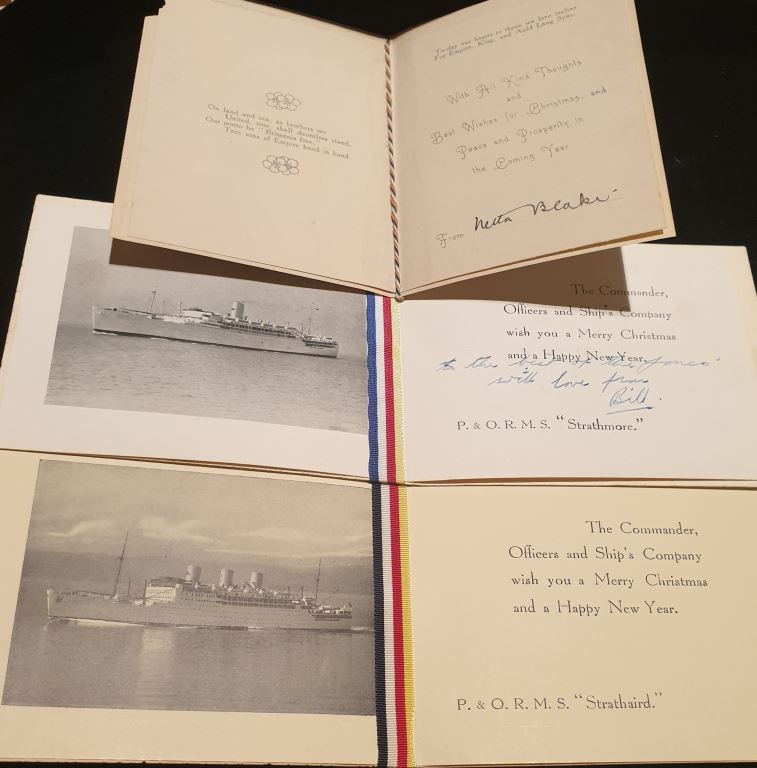 On land and sea, as brothers we
United, true, shall dauntless stand,
Our motto be "Britannia free,"
True sons of Empire hand in hand.
To-day our hearts to those we love incline
For Empire, King, and Auld Lang Syne.
With All Kind Thoughts
and
Best Wishes for Christmas, and
Peace and Prosperity in
the Coming Year.
From Netta Blake
The Commander,
Officers and Ship's Company
wish you a Merry Christmas
and a Happy New Year.
to the best of the Jones'
with love from
Bill.
P. & O. R. M. S. "Strathmore."
The Commander,
Officers and Ship's Company
wish you a Merry Christmas
and a Happy New Year.
P. & O. R. M. S. "Strathaird."